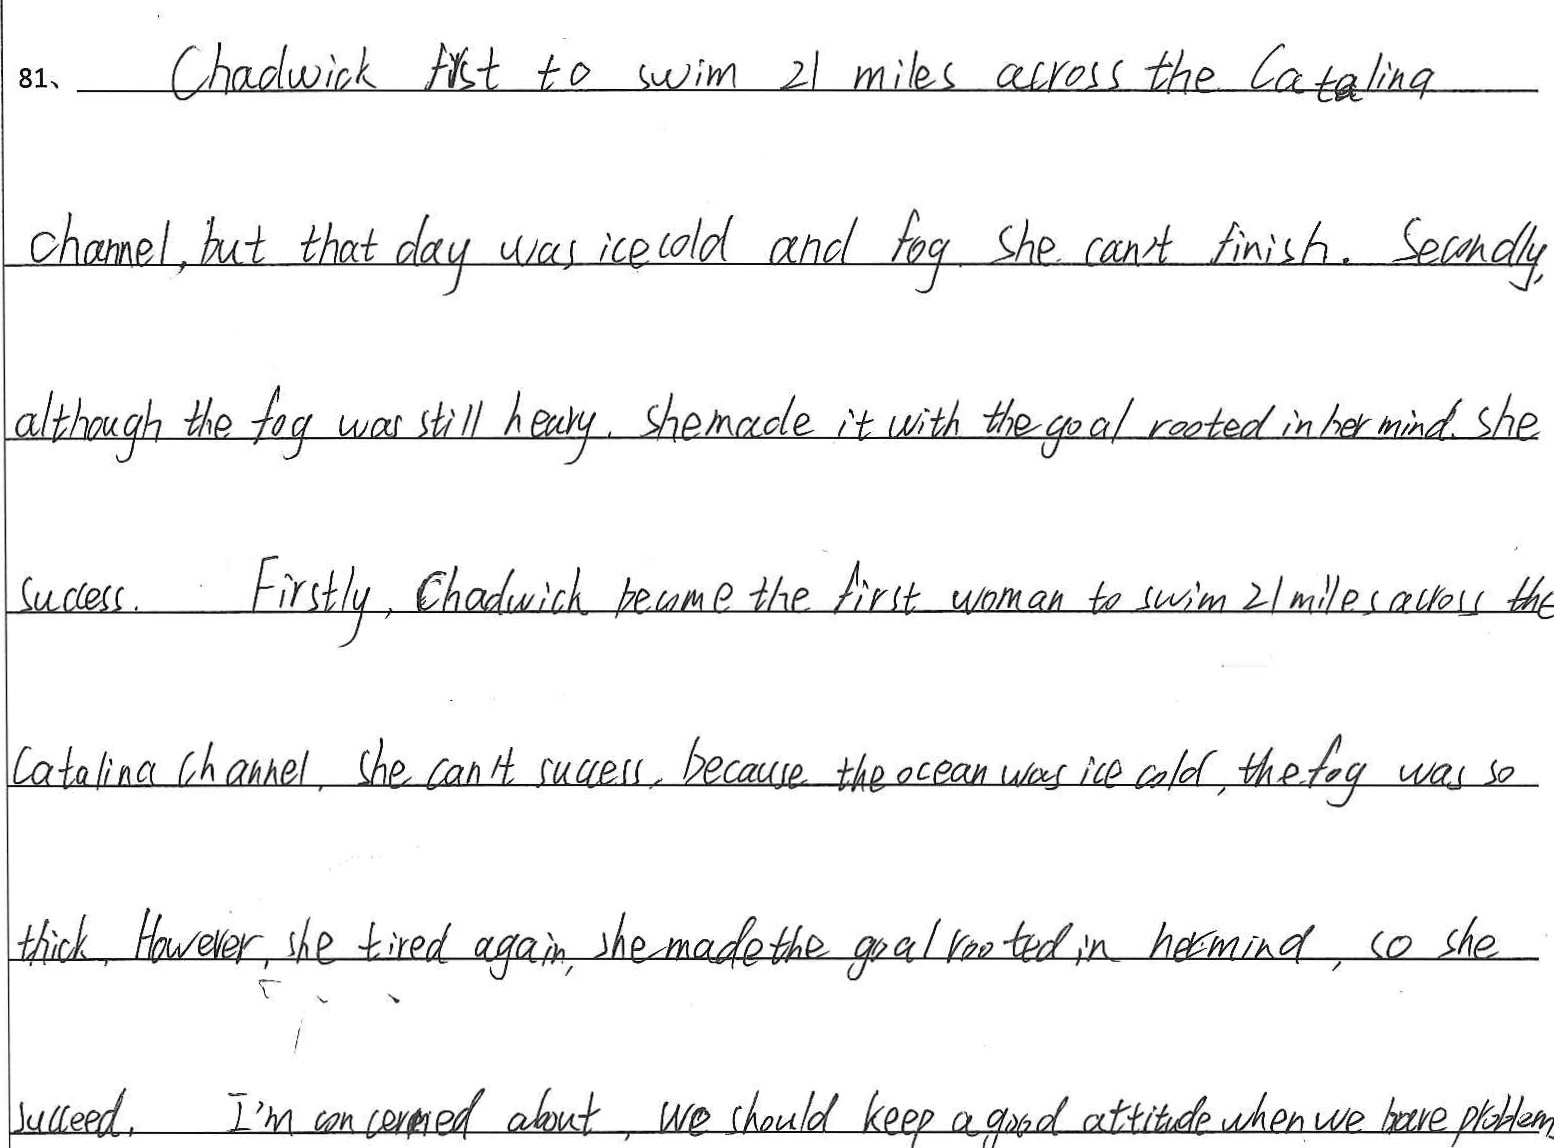 81、 Chadwick first to swim 21 miles across the Catalina
channel, but that day was ice cold and fog. She can't finish. Secondly,
although the fog was still heavy. she made it with the goal rooted in her mind. she
success. Firstly, Chadwick become the first woman to swim 21 miles across the
Catalina Channel, she can't success. because the ocean was ice cold, the fog was so
thick. However, she tired again, she made the goal rooted in her mind, so she
succeed. I'm concerned about, we should keep a good attitude when we have problem.